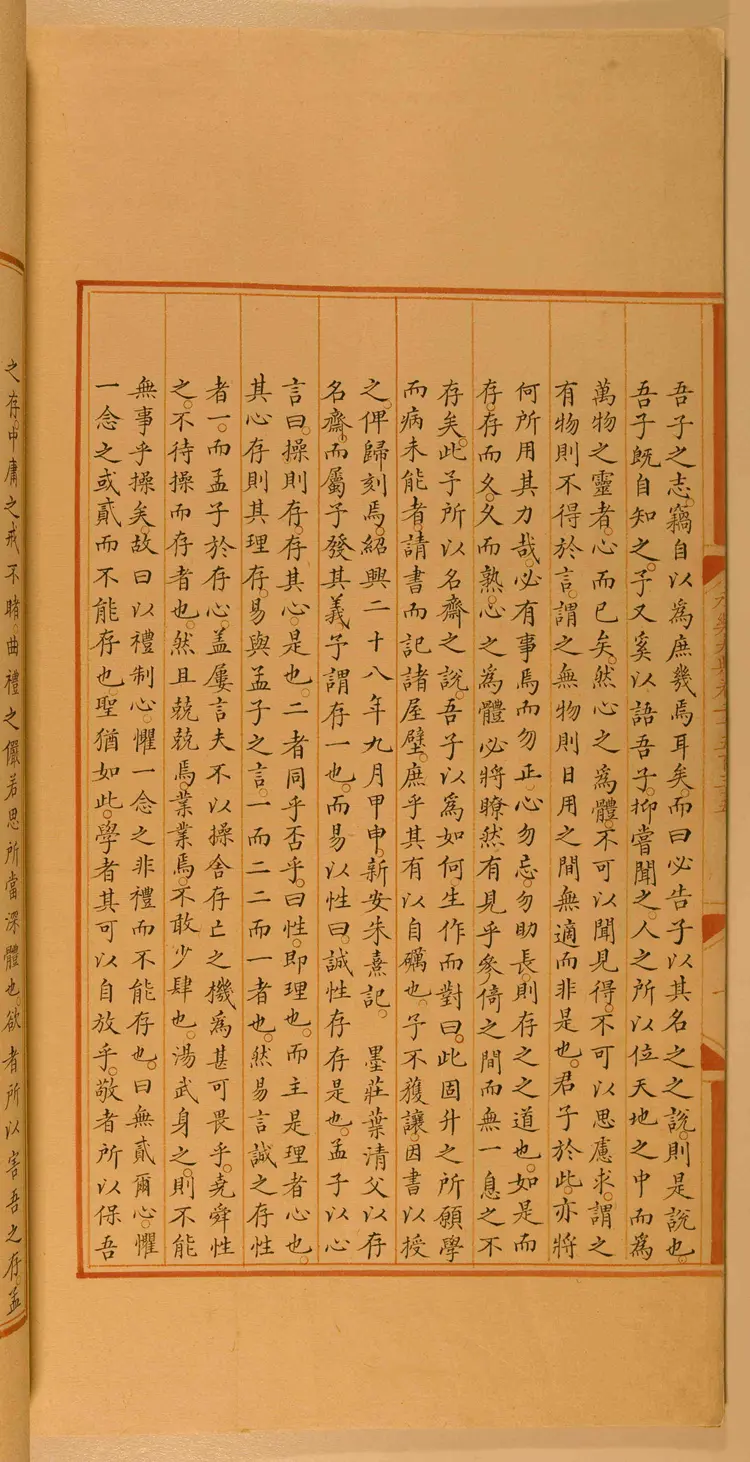 吾子之志。竊自以為庶幾焉耳矣。而曰必告子以其名之之說。則是說也。
吾子既自知之。予又奚以語吾子。抑嘗聞之。人之所以位天地之中而為
萬物之靈者。心而已矣。然心之為體。不可以聞見得。不可以思慮求。謂之
有物則不得於言。謂之無物則日用之間無適而非是也。君子於此。亦將
何所用其力哉。必有事焉而勿正。心勿忘。勿助長。則存之之道也。如是而
存。存而久。久而熟。心之為體必將瞭然有見乎參倚之間而無一息之不
存矣。此予所以名齋之說。吾子以為如何。生作而對曰。此固升之所願學
而病未能者。請書而記諸屋壁。庶乎其有以自礪也。予不獲讓。因書以授
之。俾歸刻焉。紹興二十八年九月甲申。新安朱熹記。 墨莊葉清父以存
名齋。而屬予發其義。予謂存一也。而易以性曰。誠性存存是也。孟子以心
言曰。操則存。存其心。是也。二者同乎否乎。曰性。即理也。而主是理者心也。
其心存則其理存。易與孟子之言。一而二二而一者也。然易言誠之存性
者一。而孟子於存心。盖屢言夫不以操舍存亡之機為甚可畏乎。堯舜性
之。不待操而存者也。然且兢兢焉。業業焉。不敢少肆也。湯武身之。則不能
無事乎操矣。故曰以禮制心。懼一念之非禮而不能存也。曰無貳爾心。懼
一念之或貳而不能存也。聖猶如此。學者其可以自放乎。敬者所以保吾
之存。中庸之戒不睹。曲禮之儼若思所當深體也。欲者所以害吾之存。孟